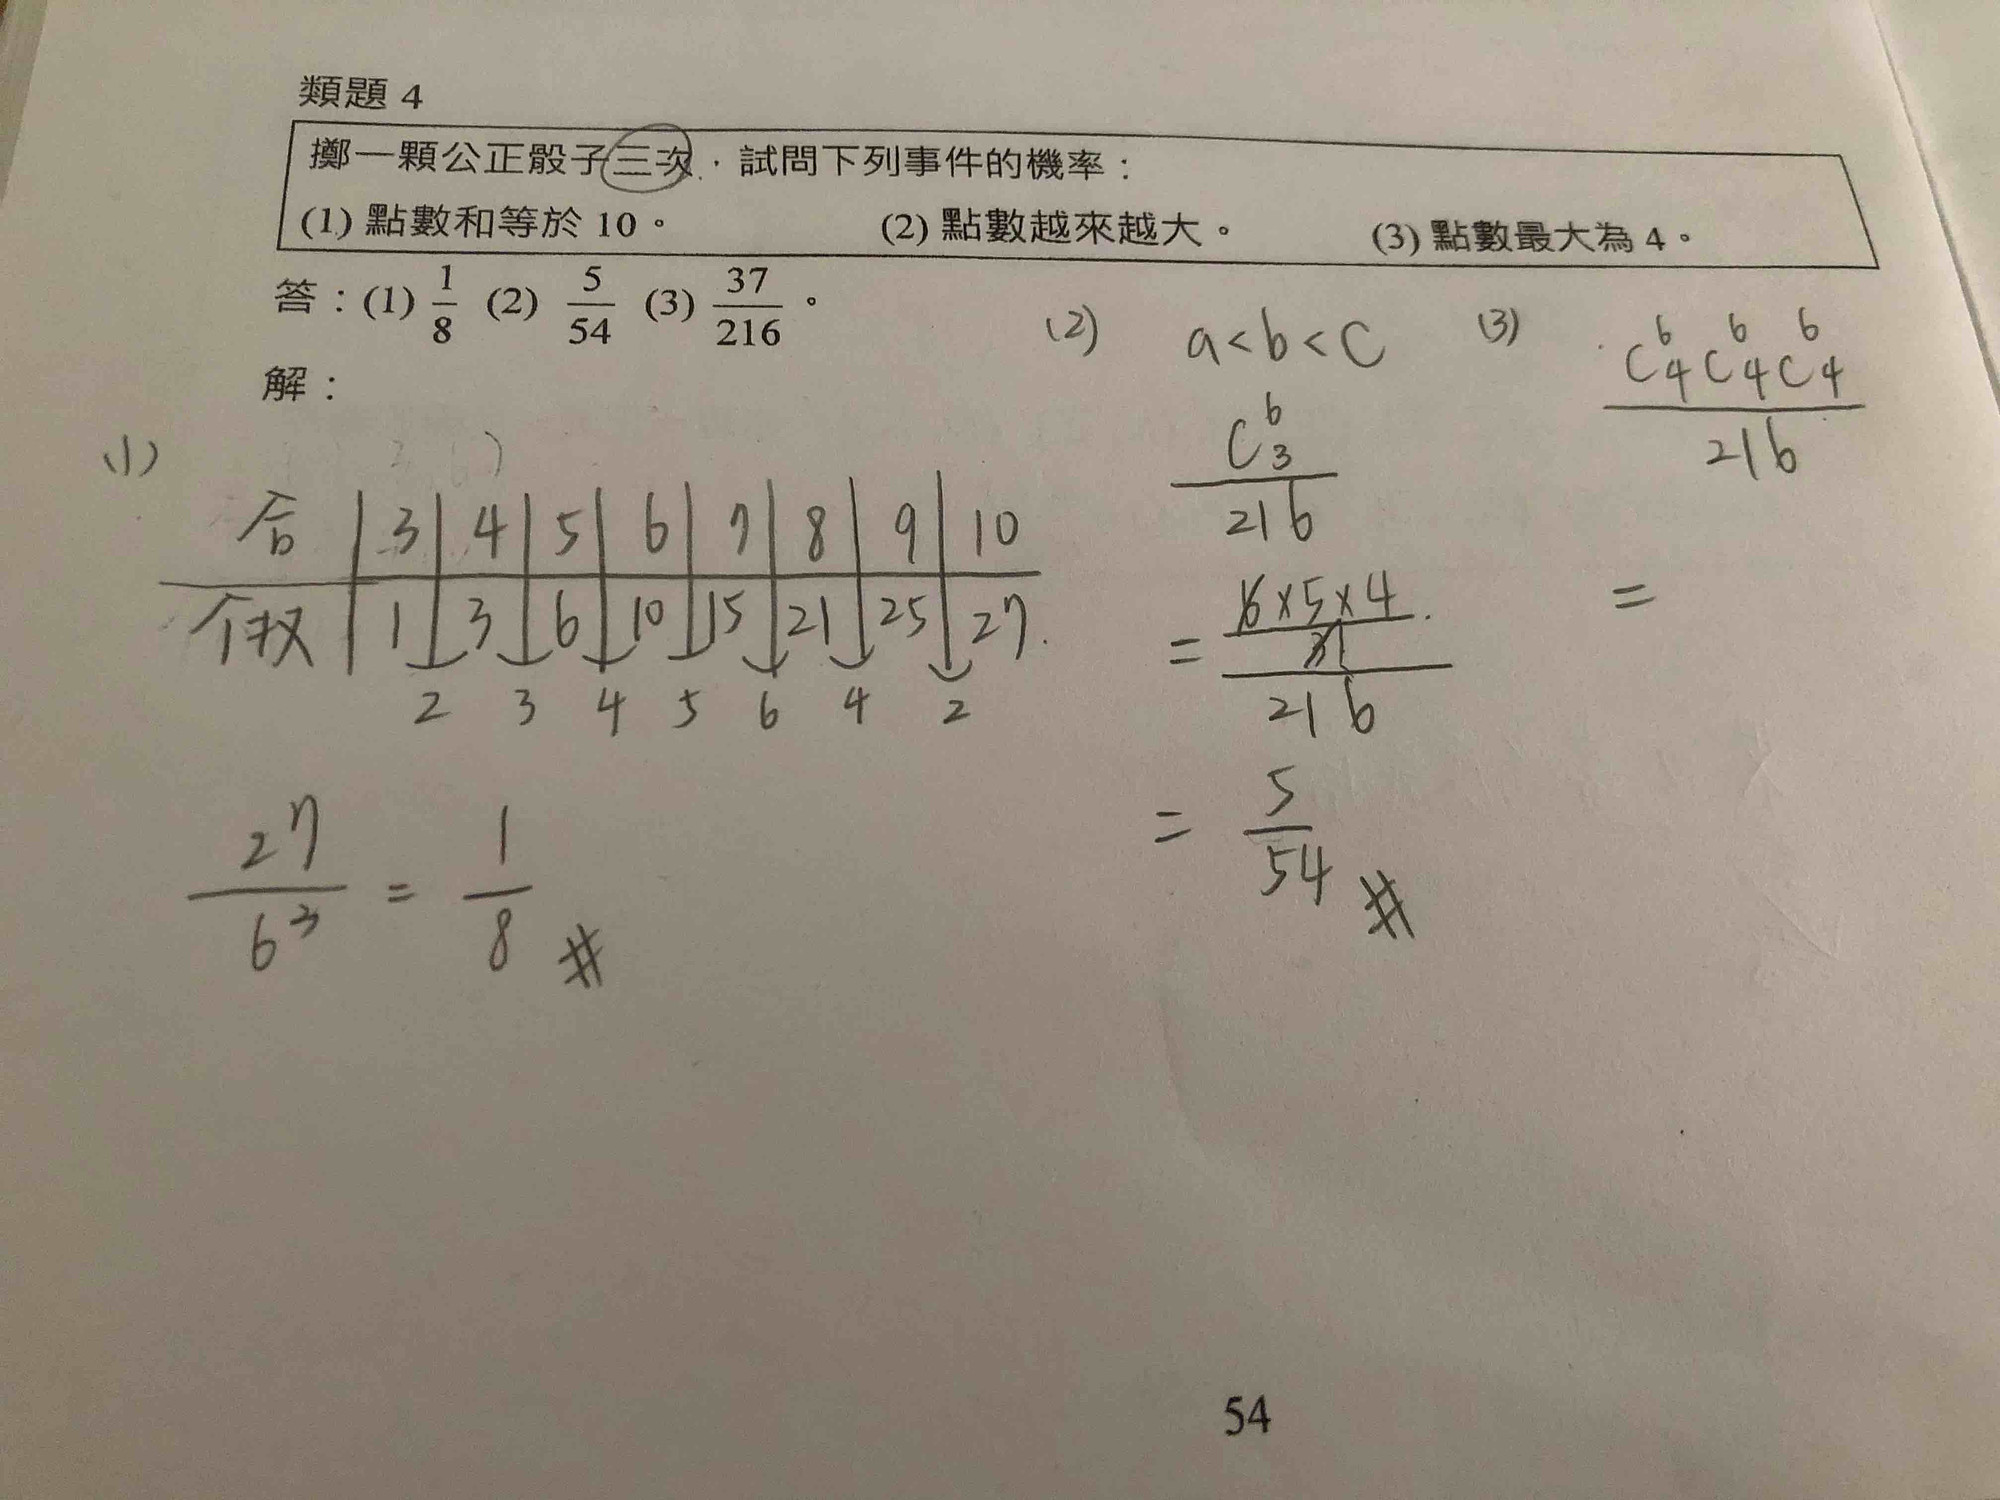 類題 4
擲一顆公正骰子三次，試問下列事件的機率：
(1) 點數和等於 10。 (2) 點數越來越大。 (3) 點數最大為 4。
答：(1) 1/8 (2) 5/54 (3) 37/216。
解：
(1)
合 3 4 5 6 7 8 9 10
个数 1 3 6 10 15 21 25 27
2 3 4 5 6 4 2
27/6³ = 1/8 #
(2) a<b<c
C⁶₃/216
= (6×5×4/3!)/216
= 5/54 #
(3) C⁶₄C⁶₄C⁶₄/216
=
54